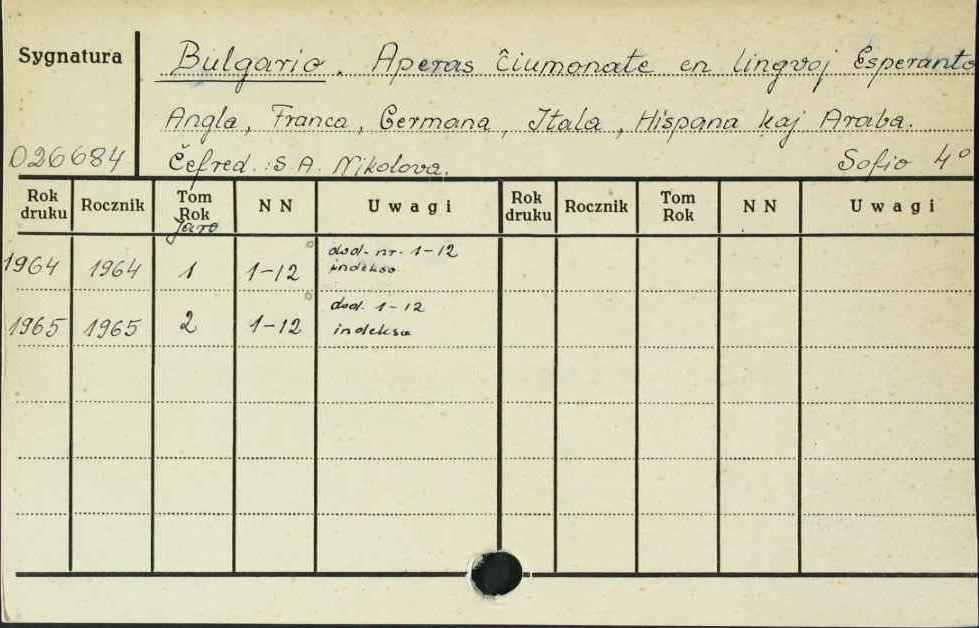 Sygnatura
Bulgario. Aperas ĉiumonate en lingvoj Esperanto
Angla, Franca, Germana, Itala, Hispana kaj Araba.
026684
Ĉefred.: S.A. Nikolova. Sofio 4°
Rok druku Rocznik Tom Rok Jaro NN Uwagi Rok druku Rocznik Tom Rok NN Uwagi
1964 1964 1 1-12 dod. nr. 1-12
indekso
1965 1965 2 1-12 dod. 1-12
indekso